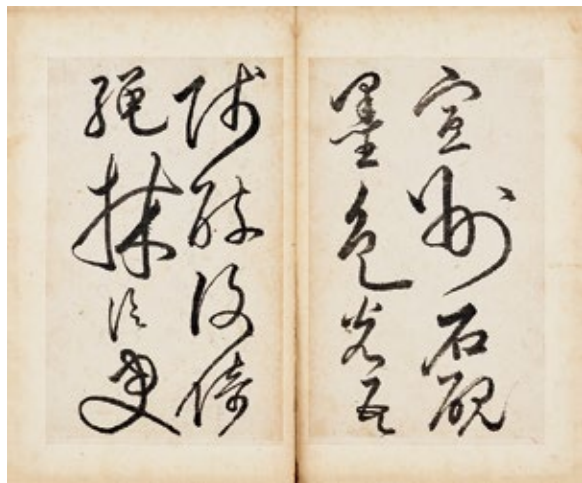 宣州石硯
墨色光吾
師醉後倚
繩牀須臾